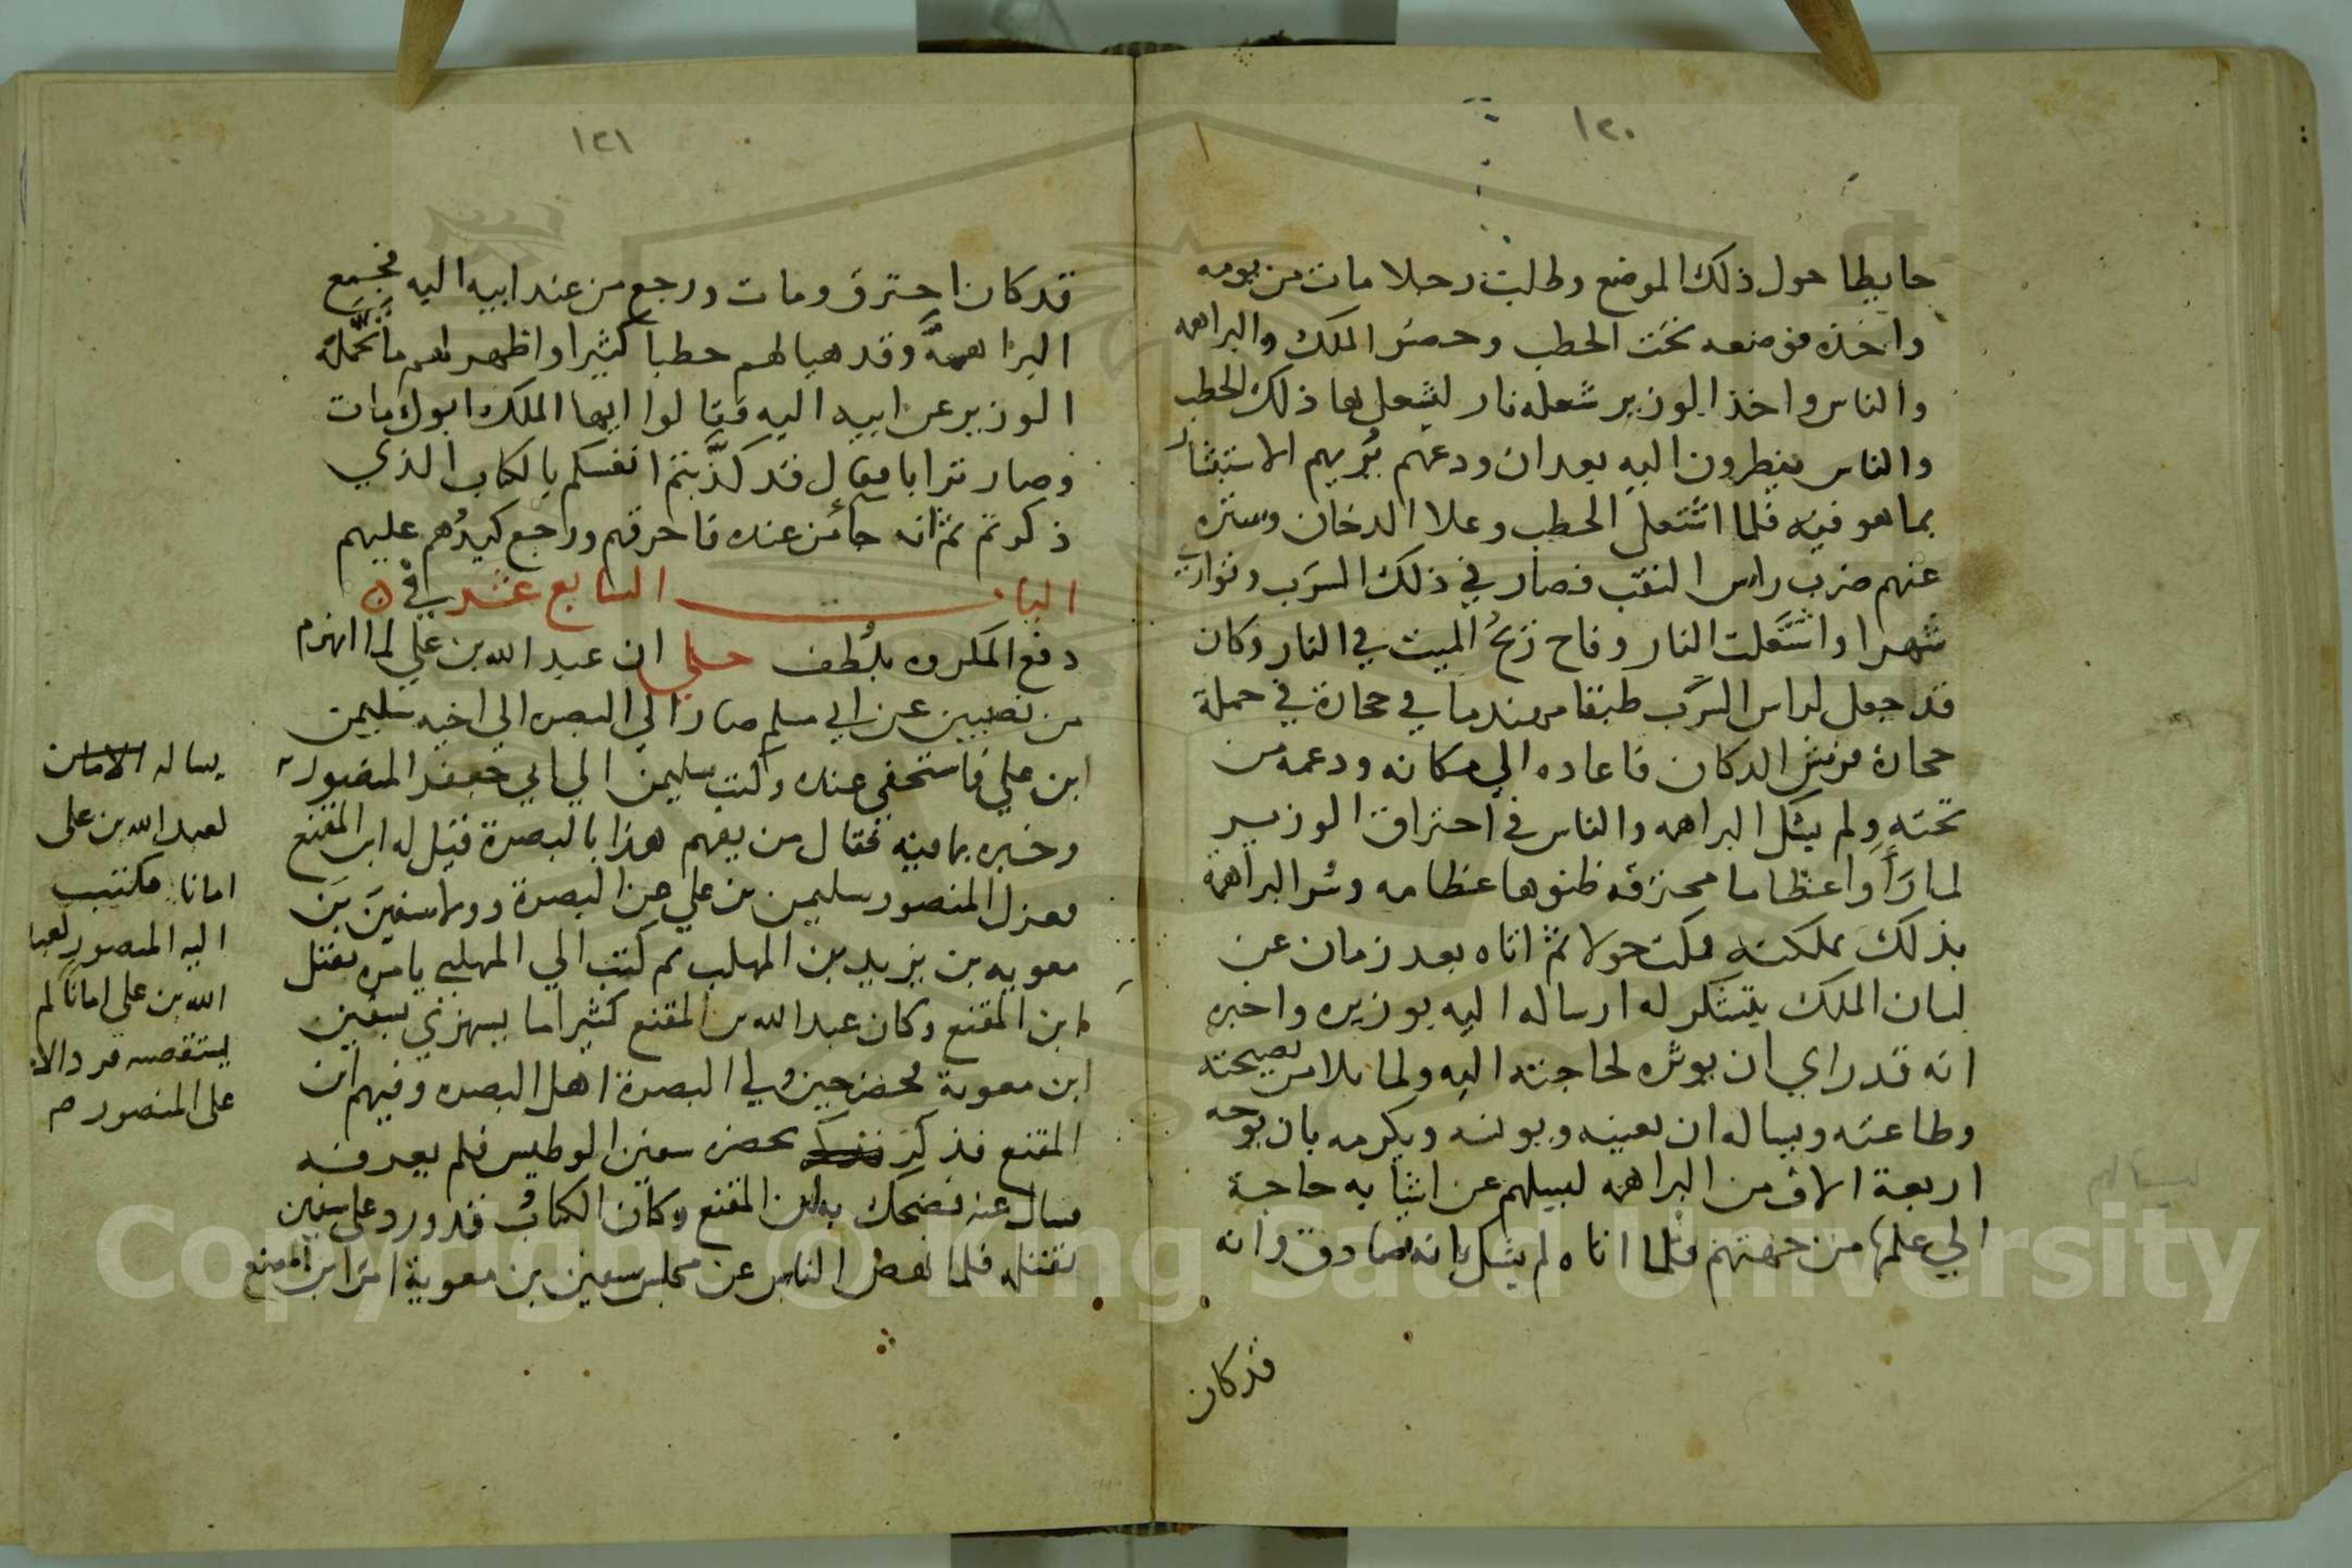 ١٢٠
حايطا حول ذلك الموضع وطلبت رجلا مات من يومه
واخذه فوضعه تحت الحطب وحضر الملك والبراهمه
والناس واخذ الوزير شعله نار ليشعل بها ذلك الحطب
والناس ينظرون اليه بعد ان ودعهم يُريهم الاستبشار
بما هو فيه فلما اشتعل الحطب وعلا الدخان وستره
عنهم ضرب راس النقب فصار في ذلك السرَب وتوارت
شهرا واشتعلت النار وفاح ريحُ الميت في النار وكان
قد جعل لراس السَرَب طبقا مهندما في حجارة في جملة
حجارة فرش الدكان فاعاده الي مكانه ودعمه من
تحته ولم يشك البراهمه والناس في احتراق الوزير
لما رَاَوا عظاما محترقه ظنوها عظامه وسُر البراهمة
بذلك مملكته فمكث حولا ثم اتاه بعد زمان عن
لسان الملك يتشكر له ارساله اليه بوزيره واخبره
انه قد راي ان يوثره لحاجته اليه ولما بلا من نصيحته
وطاعته ويساله ان يعينه ويونسه ويكرمه بان يوجه
اربعة الاف من البراهمه ليسيلهم عن اشيا به حاجة
الي علمها من جهتهم فلما اتاه لم يشك انه صادق وانه
قد كان
١٢١
قد كان احترق ومات ورجع من عند ابيه اليه فجمع
البراهمةَ وقد هيا لهم حطبا كثيرا واظهر لهم ما تَحَمَّله
الوزير عن ابيه اليه فقالوا ايها الملك ابوك مات
وصار ترابا فقال قد كذَّبتم انفسكم بالكتاب الذي
ذكرتم ثم انه جائز عنده فاحرقهم ورجع كيدُهم عليهم
الباب السابع عشر في
دفع المكروه بلُطف حكي ان عبد الله بن علي لما انهزم
من نصيبين عن ابي مسلم صار الي البصره الي اخيه سليمن
ابن علي فاستخفي عنده وكتب سليمن الي ابي جعفر المنصور
وخبره بما فيه فقال من يفهم هذا بالبصرة قيل له ابن المقفع
فعزل المنصور سليمن بن علي عن البصرة وولا سفينَ بنَ
معويه بن يزيد بن المهلب ثم كتب الي المهلبي يامره بقتل
ابن المقفع وكان عبد الله بن المقفع كثيرا ما يستهزي بسفين
ابن معوية فحضر حين ولي البصرة اهل البصره وفيهم ابن
المقفع فذكر بحضره سفين الوطيس فلم يعرفه
فسال عنه فضحك به ابن المقفع وكان الكتابُ قد ورد على سفين
بقتله فلما نهض الناس عن مجلس سفين بن معوية امر ابن المقفع
يساله الامان
لعبد الله بن على
امانا فكتب
اليه المنصور لعبد
الله بن على امانا لم
يستقصه فرد الامان
على المنصور م
Copyright © King Saud University